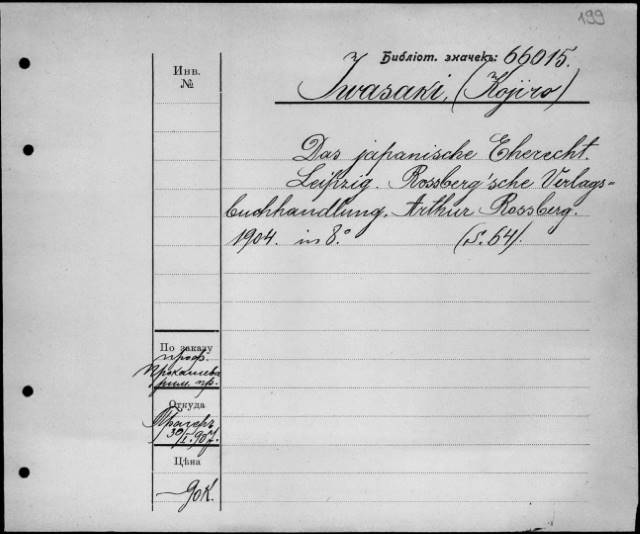 199
Библіот. значекъ: 66015.
Инв.
№
Iwasaki, (Kojiro)
Das japanische Eherecht.
Leipzig. Rossberg'sche Verlags=
buchhandlung, Arthur Rossberg.
1904. in 8.° (S. 64).
По заказу
проф.
Прокошева
Откуда
30/I. 907.
Цѣна
— 90 к.